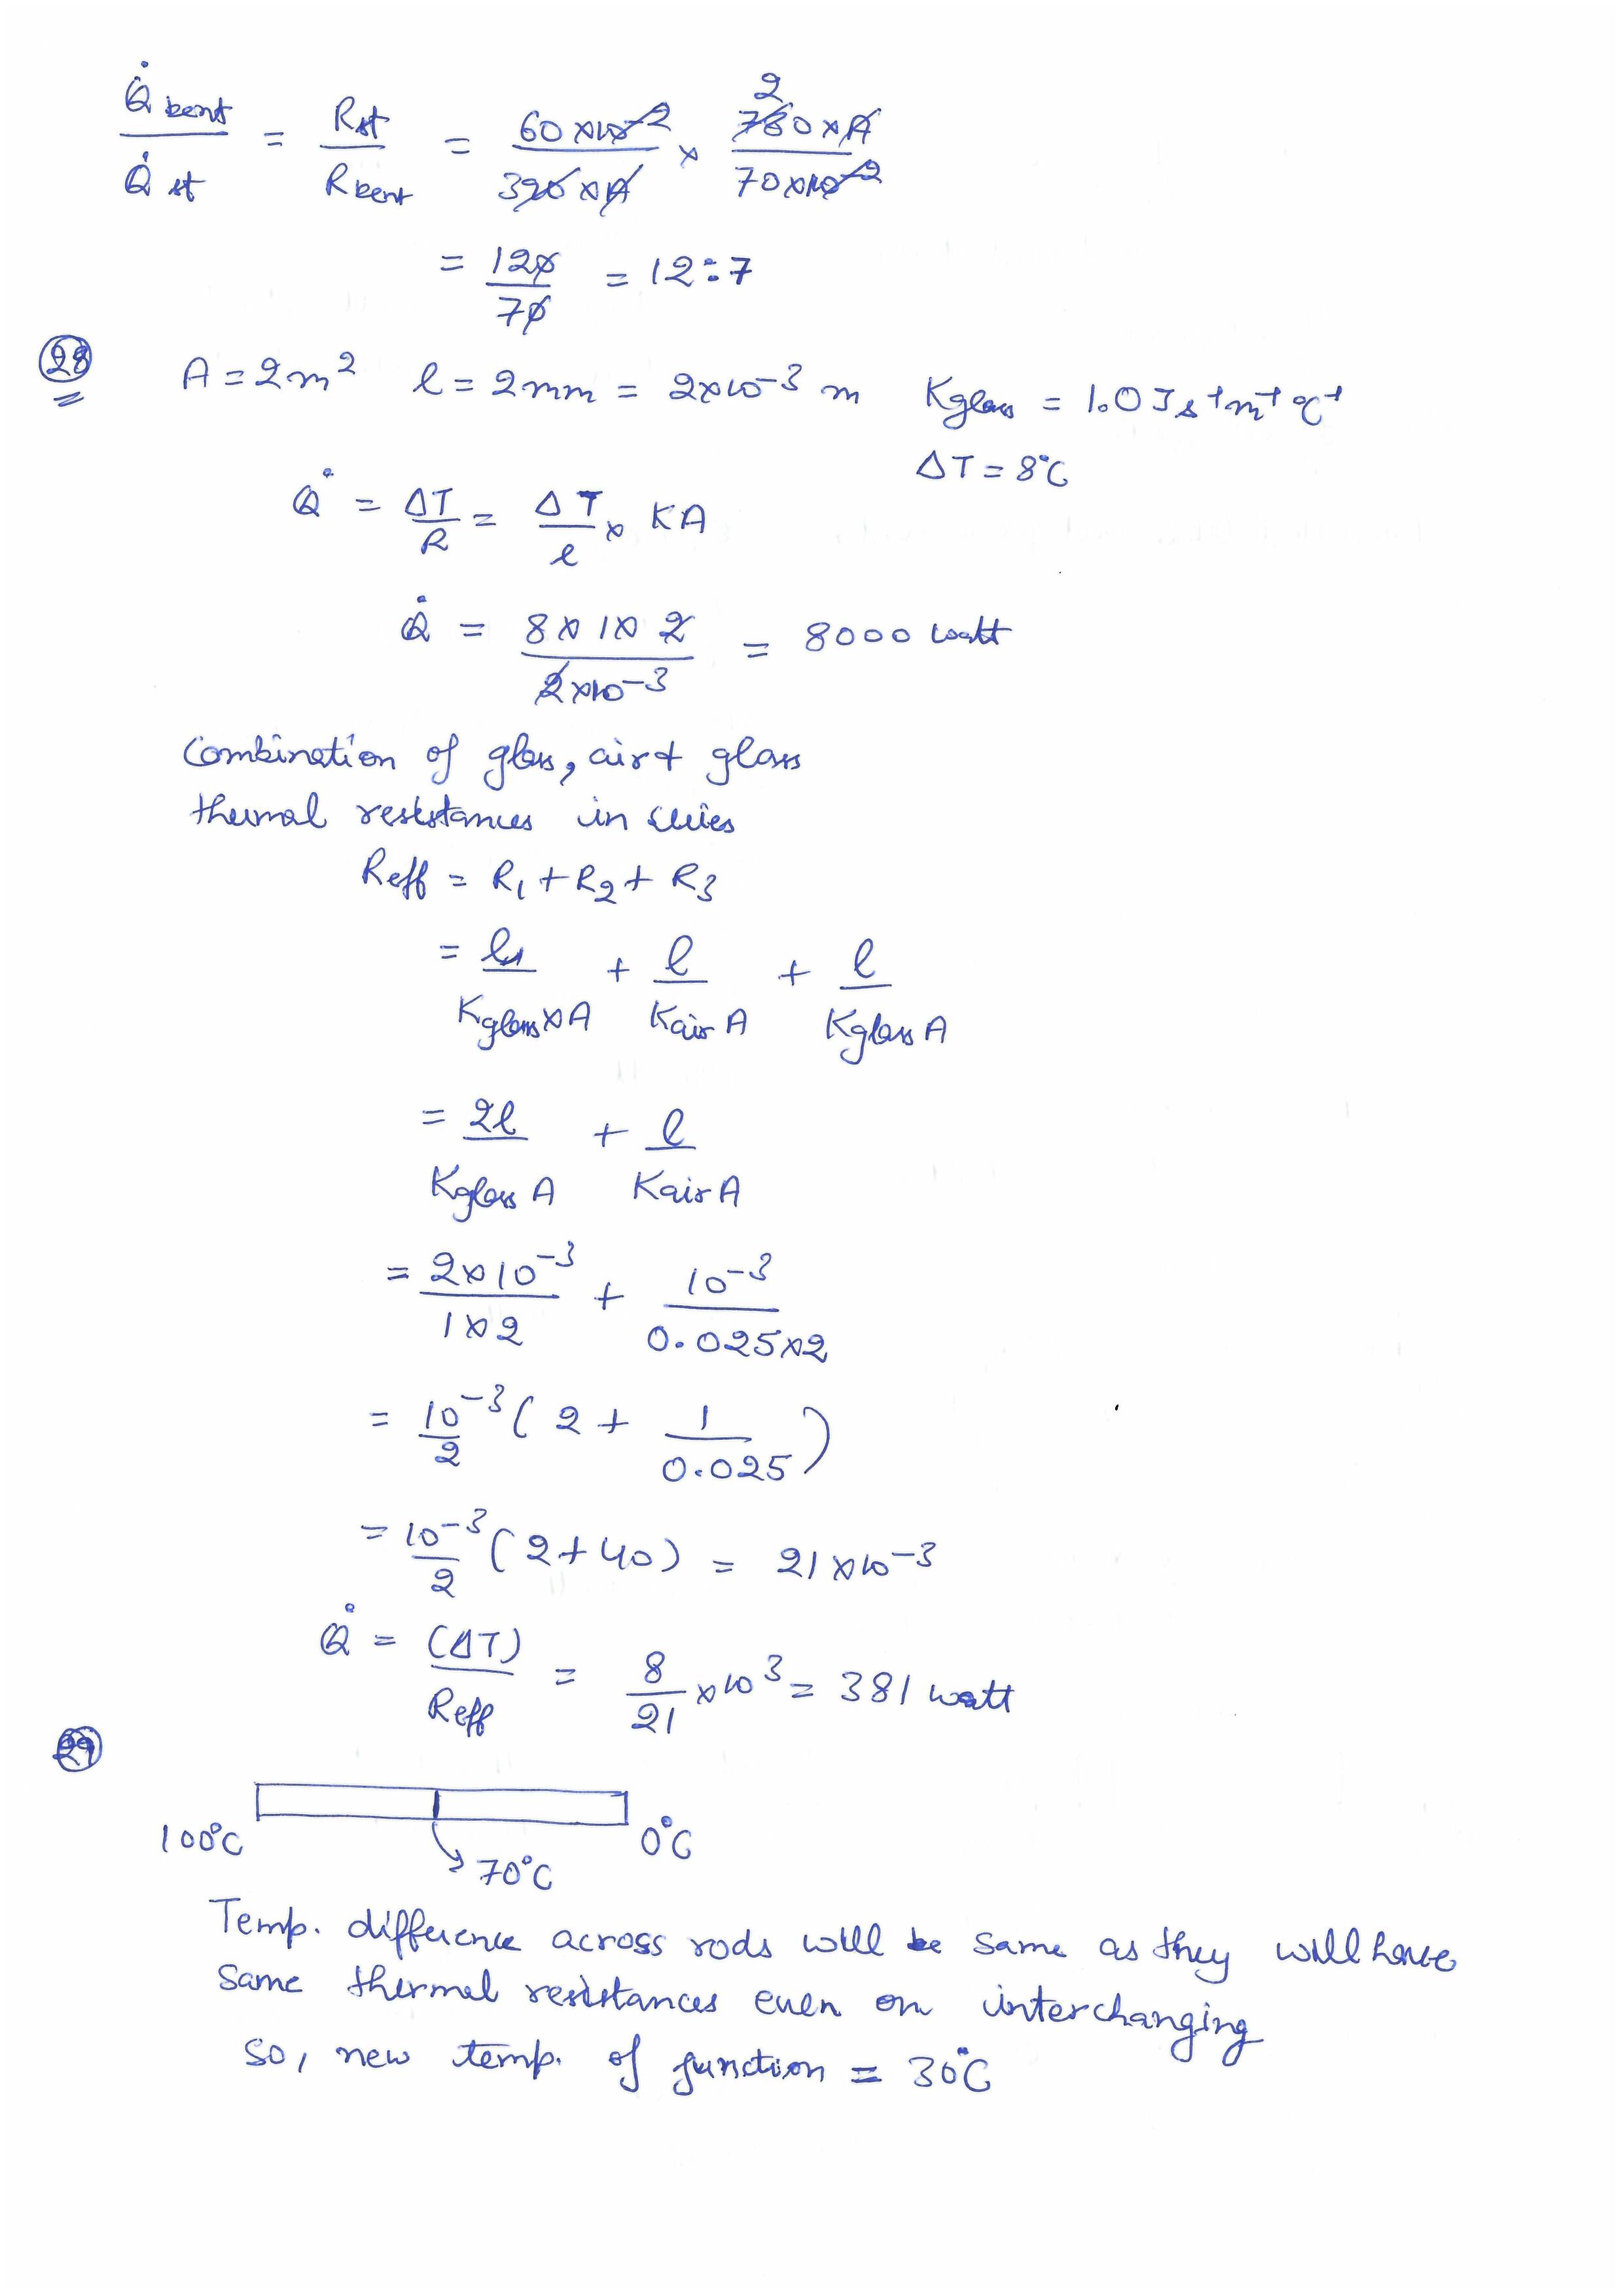 Q̇ bent / Q̇ st = Rst / R bent = 60×10⁻² / 390×A × 2 780×A / 70×10⁻²
= 120/70 = 12:7
28 A = 2m² l = 2mm = 2×10⁻³ m Kglass = 1.0 J s⁻¹m⁻¹ °C⁻¹
ΔT = 8°C
Q̇ = ΔT/R = ΔT/l × KA
Q̇ = 8×1×2 / 2×10⁻³ = 8000 watt
Combination of glass, air & glass
thermal resistances in series
Reff = R₁ + R₂ + R₃
= l / Kglass×A + l / Kair A + l / Kglass A
= 2l / Kglass A + l / Kair A
= 2×10⁻³ / 1×2 + 10⁻³ / 0.025×2
= 10⁻³/2 ( 2 + 1/0.025 )
= 10⁻³/2 ( 2 + 40 ) = 21×10⁻³
Q̇ = (ΔT) / Reff = 8/21 ×10³ = 381 watt
29
100°C 0°C
70°C
Temp. difference across rods will be same as they will have
same thermal resistances even on interchanging
so, new temp. of junction = 30°C